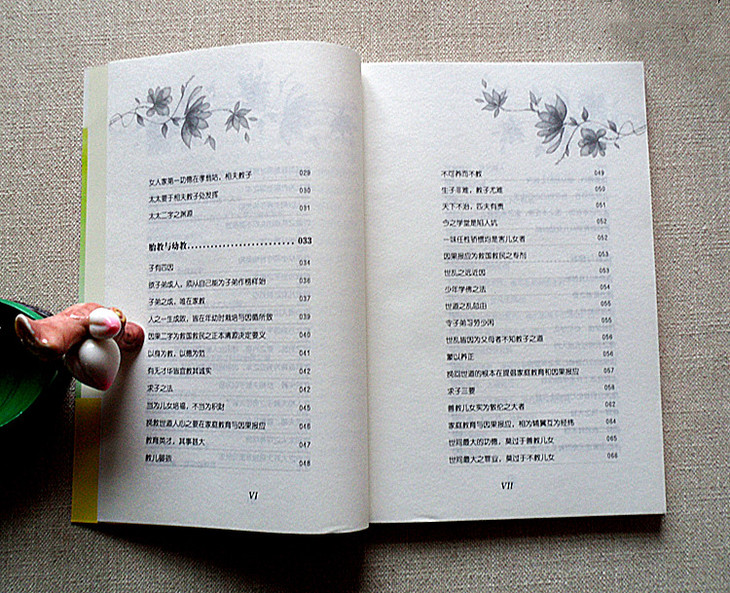 女人家第一功德在孝翁姑、相夫教子 029
太太要于相夫教子处发挥 030
太太二字之渊源 031
胎教与幼教 033
子有四因 034
欲子弟成人，须从自己能为子弟作榜样始 036
子弟之成，唯在家教 037
人之一生成败，皆在年幼时栽培与因循所致 039
因果二字为救国救民之正本清源决定要义 040
以身为教，以德为范 041
有无才华皆宜教其诚实 042
求子之法 042
当为儿女培福，不当为积财 045
挽救世道人心之要在家庭教育与因果报应 046
教育英才，其事甚大 047
教儿婴孩 048
VI
不可养而不教 049
生子非难，教子尤难 050
天下不治，匹夫有责 051
今之学堂是陷人坑 052
一味任性娇惯均是害儿女者 052
因果报应为救国救民之专剂 053
世乱之远近因 053
少年学佛之法 054
世道之乱结由 054
令子弟习劳少闲 055
世乱皆因为父母者不知教子之道 055
蒙以养正 056
挽回世道的根本在提倡家庭教育和因果报应 057
求子三要 058
善教儿女实为敦伦之大者 062
家庭教育与因果报应，相为辅翼互为经纬 064
世间最大的功德，莫过于善教儿女 065
世间最大之罪业，莫过于不教儿女 066
VII